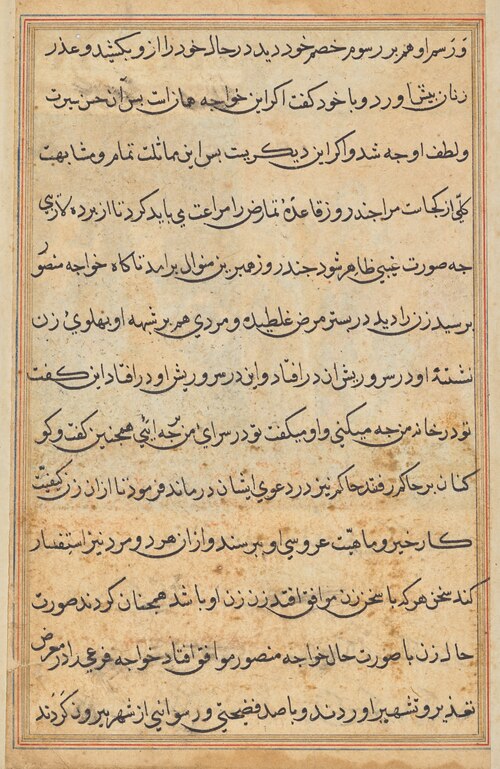 و رسم او هم بر رسوم خصم خود دید در حال خود را ازو بکشید و عذر
زنان پیش اورد و با خود کفت اکر این خواجه همانست پس آن حسن سیرت
و لطف او چه شد و اکر این دیکریت پس این مماثلت تمام و مشابهت
کلّی از کجاست مرا چند روز قاعدهٔ تمارض را مراعت می باید کرد تا از پرده
چه صورت غیبی ظاهر شود چند روز هم برین منوال برامد ناکاه خواجه منصور
برسید زن را دید در بستر مرض غلطیده و مردی هم بر شبه او پهلوی زن
نشسته او در سر و ریش ان در افتاد و این در سر و ریش او در افتاد این کفت
تو در خانه من چه میکنی و او میکفت تو در سرای من بر چه ائی همچنین کفت و کو
کنان بر حاکم رفتند حاکم نیز در دعوی ایشان در ماند فرمود تا ازان زن کیفیّت
کار خیر و ماهیّت عروسی او بپرسند و ازان هر دو مرد نیز استفسار
کند سخن هر که با سخن زن موافق افتد زن زن او باشد همچنان کردند صورت
حال زن با صورت حال خواجه منصور موافق افتاد خواجه فرعی را در معرض
تعذیر و تشهیر اوردند و با صد فضیحتی و رسوائی از شهر بیرون کردند